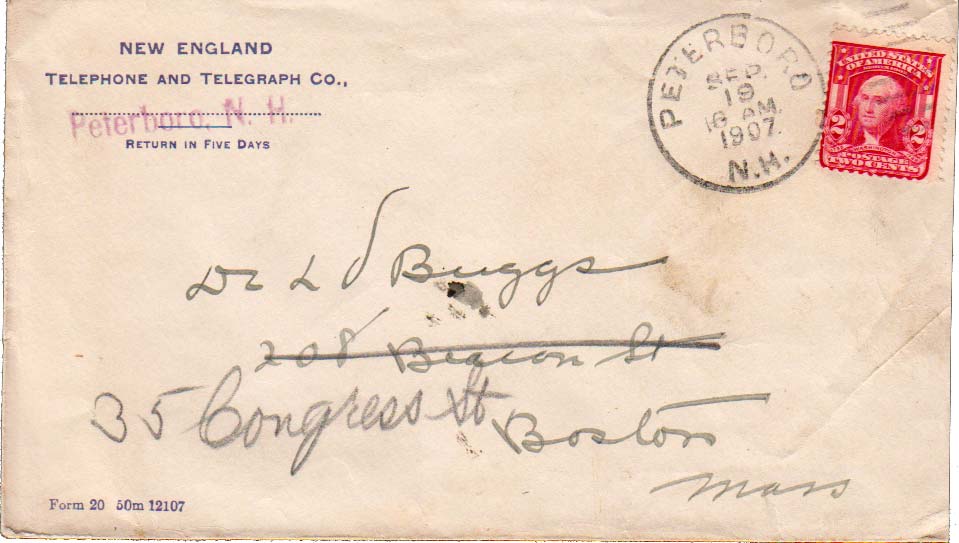 NEW ENGLAND
TELEPHONE AND TELEGRAPH CO.,
Peterboro, N. H.
RETURN IN FIVE DAYS
PETERBORO
SEP.
19
AM.
1907.
N.H.
UNITED STATES
OF AMERICA
2 2
POSTAGE
TWO CENTS
Dr L J Buggs
208 Beacon St
35 Congress St
Boston
Mass
Form 20 50m 12107